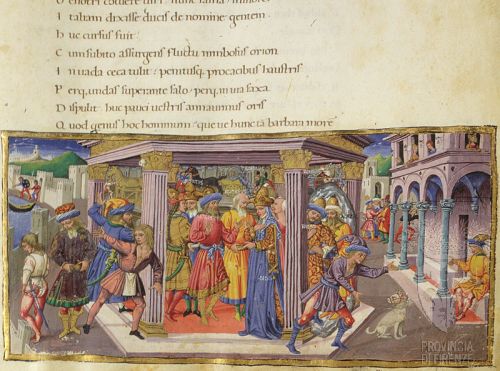 O enotri coluere uiri / nunc fama / minores
I taliam dixisse ducis de nomine gentem.
h uc cursus fuit
C um subito assurgens fluctu nimbosus orion
I n uada ceca tulit / penitusq; procacibus haustris
P erq; undas superante salo / perq; inuia saxa
D ispulit / huc pauci uestris annauimus oris
Q uod genus hoc hominum / que ue hunc ta barbara more
PROVINCIA
DI FIRENZE